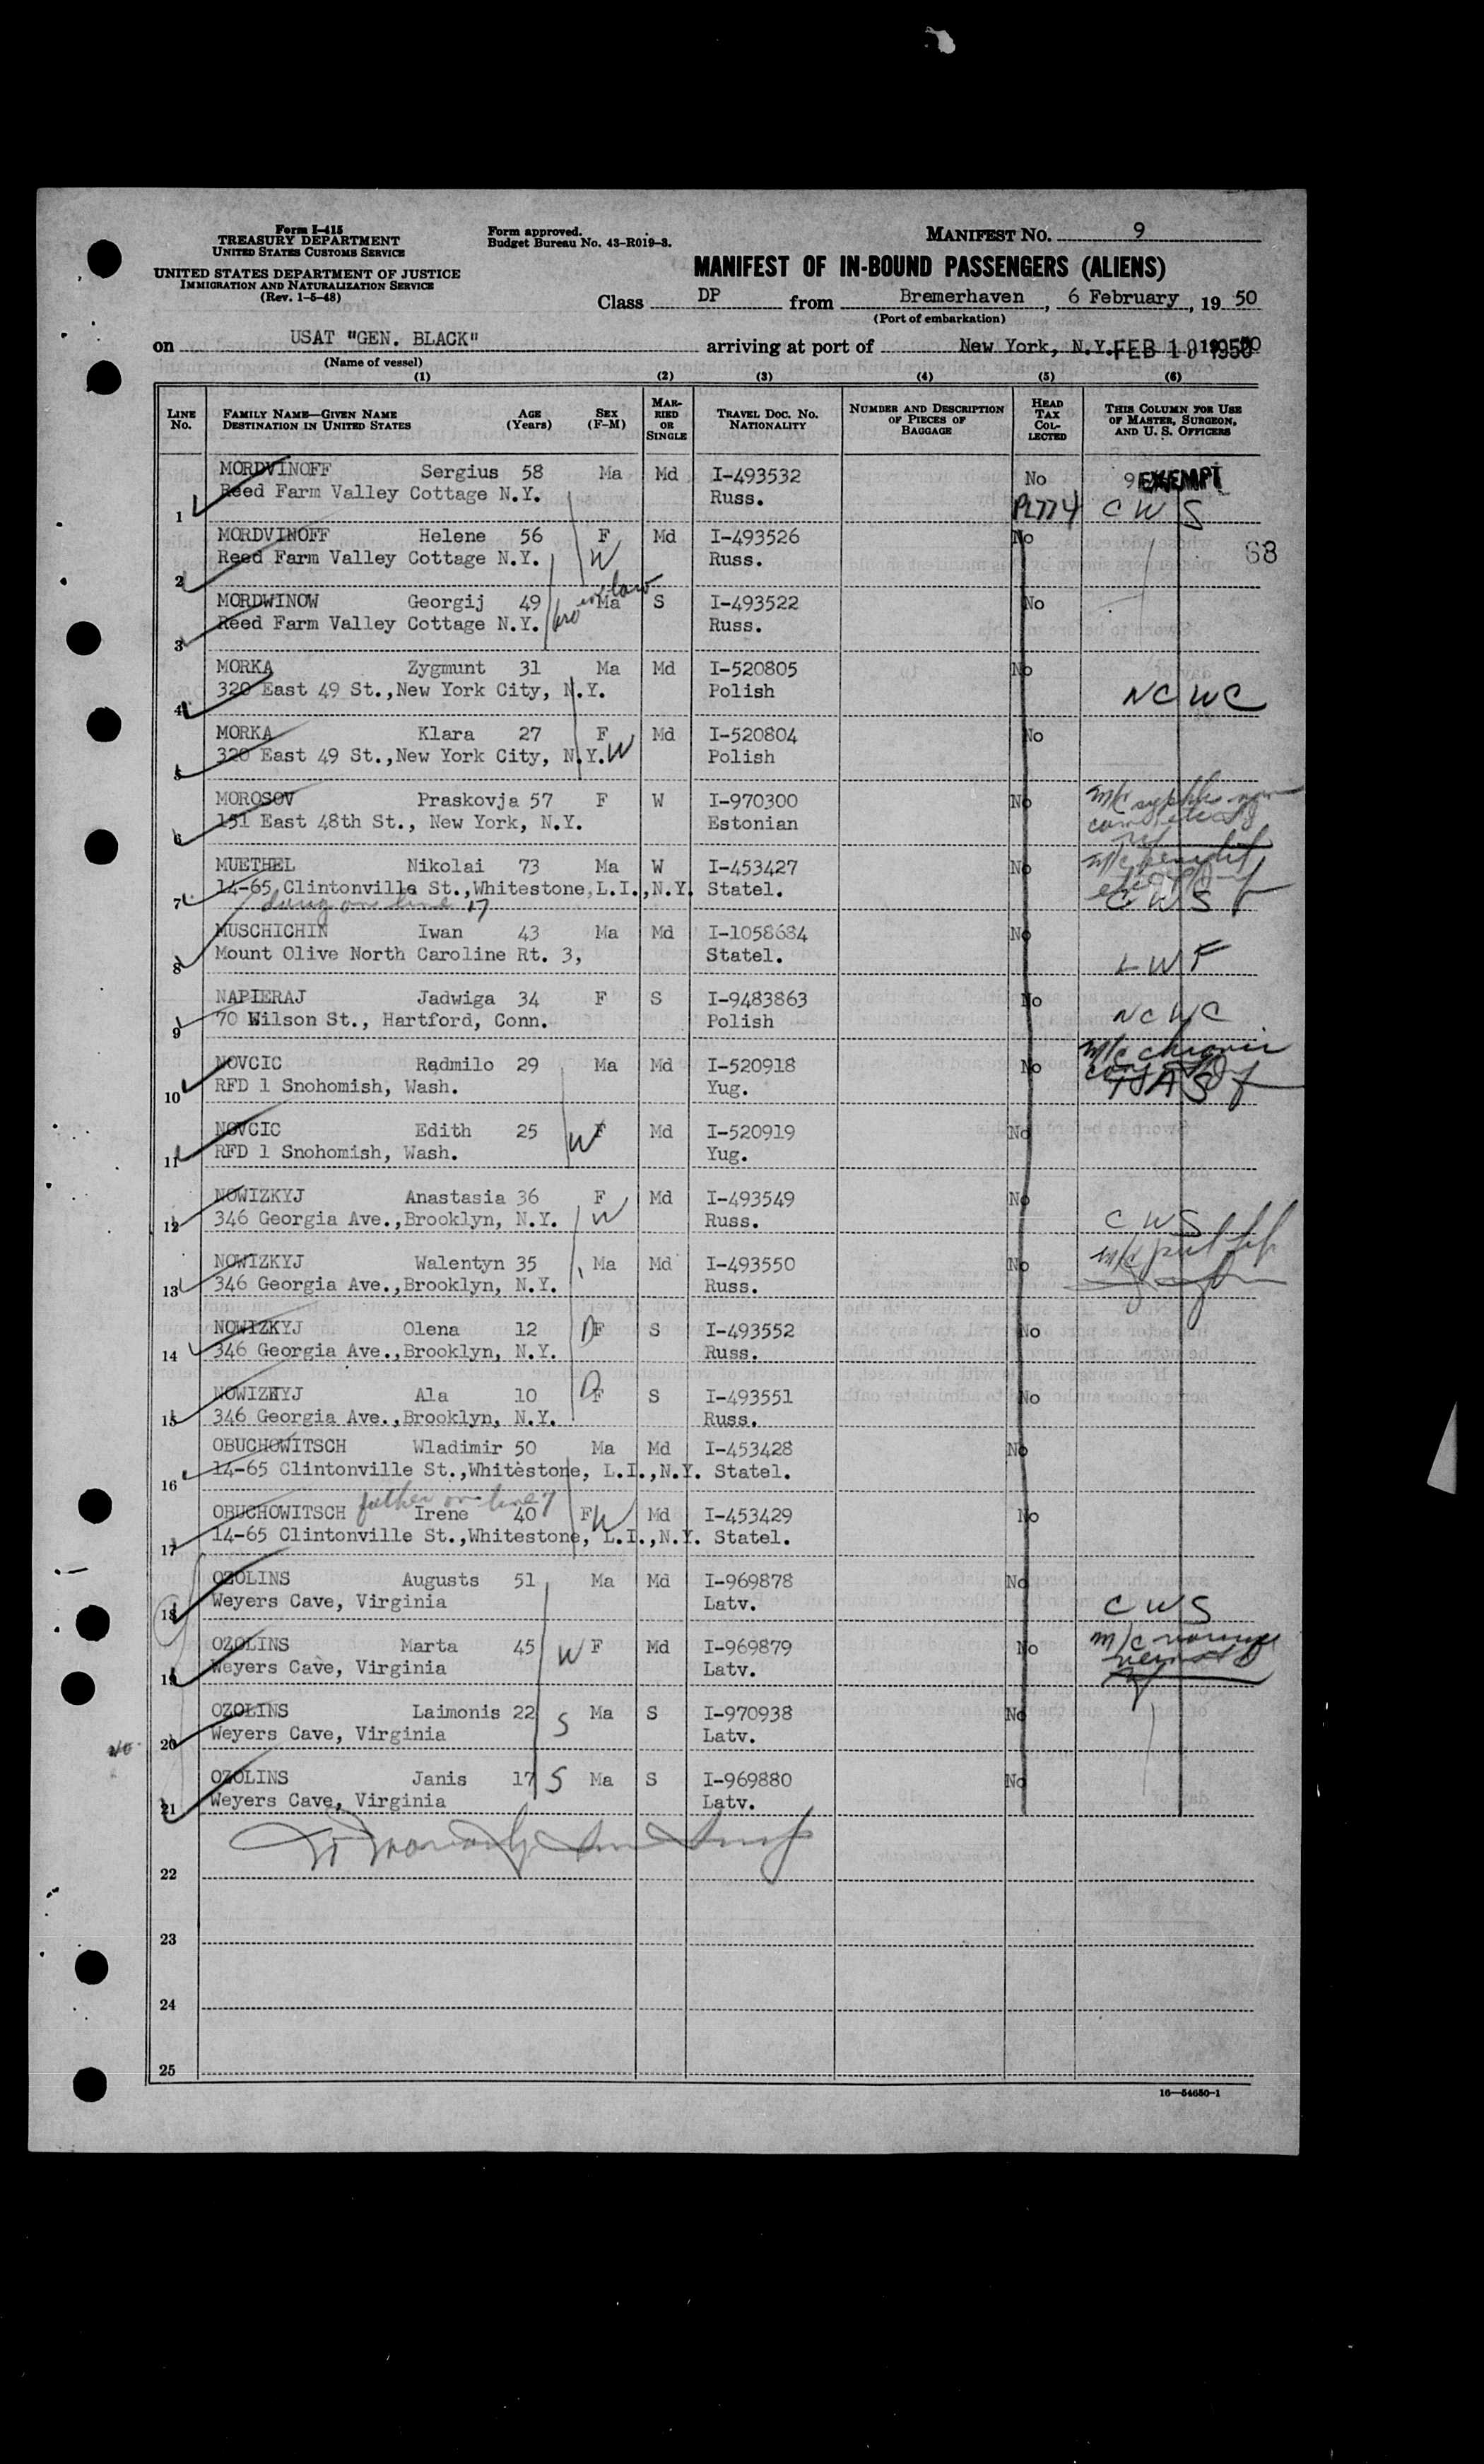 Form I-415
TREASURY DEPARTMENT
UNITED STATES CUSTOMS SERVICE
UNITED STATES DEPARTMENT OF JUSTICE
IMMIGRATION AND NATURALIZATION SERVICE
(Rev. 1-5-48)
Form approved.
Budget Bureau No. 43-R019-3.
MANIFEST NO. 9
MANIFEST OF IN-BOUND PASSENGERS (ALIENS)
Class DP from Bremerhaven, 6 February, 19 50
(Port of embarkation)
on USAT "GEN. BLACK" arriving at port of New York, N.Y. FEB 19 1950
(Name of vessel)
(1) (2) (3) (4) (5) (6)
LINE No. FAMILY NAME—GIVEN NAME DESTINATION IN UNITED STATES AGE (Years) SEX (F-M) MARRIED OR SINGLE TRAVEL DOC. NO. NATIONALITY NUMBER AND DESCRIPTION OF PIECES OF BAGGAGE HEAD TAX COLLECTED THIS COLUMN FOR USE OF MASTER, SURGEON, AND U. S. OFFICERS
MORDVINOFF Sergius 58 Ma Md I-493532 No 9 EXEMPT
1 Reed Farm Valley Cottage N.Y. Russ. PL774 CWS
MORDVINOFF Helene 56 F Md I-493526 No 68
2 Reed Farm Valley Cottage N.Y. W Russ.
MORDWINOW Georgij 49 Ma S I-493522 No
3 Reed Farm Valley Cottage N.Y. bro in law Russ.
MORKA Zygmunt 31 Ma Md I-520805 No
4 320 East 49 St.,New York City, N.Y. Polish NCWC
MORKA Klara 27 F Md I-520804 No
5 320 East 49 St.,New York City, N.Y. W Polish
MOROSOV Praskovja 57 F W I-970300 No m/c
6 151 East 48th St., New York, N.Y. Estonian
MUETHEL Nikolai 73 Ma W I-453427 No m/c
7 14-65 Clintonville St.,Whitestone,L.I.,N.Y. Statel. CWS
on line 17
MUSCHICHIN Iwan 43 Ma Md I-1058684 No
8 Mount Olive North Caroline Rt. 3, Statel. LWF
NAPIERAJ Jadwiga 34 F S I-9483863 No
9 70 Wilson St., Hartford, Conn. Polish NCWC
NOVCIC Radmilo 29 Ma Md I-520918 No m/c chronic
10 RFD 1 Snohomish, Wash. Yug.
NOVCIC Edith 25 F Md I-520919 No
11 RFD 1 Snohomish, Wash. W Yug.
NOWIZKYJ Anastasia 36 F Md I-493549 No
12 346 Georgia Ave.,Brooklyn, N.Y. W Russ. CWS
NOWIZKYJ Walentyn 35 Ma Md I-493550 No m/c
13 346 Georgia Ave.,Brooklyn, N.Y. Russ.
NOWIZKYJ Olena 12 D F S I-493552 No
14 346 Georgia Ave.,Brooklyn, N.Y. Russ.
NOWIZKYJ Ala 10 D F S I-493551 No
15 346 Georgia Ave.,Brooklyn, N.Y. Russ.
OBUCHOWITSCH Wladimir 50 Ma Md I-453428 No
16 14-65 Clintonville St.,Whitestone, L.I.,N.Y. Statel.
father on line 7
OBUCHOWITSCH Irene 40 F W Md I-453429 No
17 14-65 Clintonville St.,Whitestone, L.I.,N.Y. Statel.
OZOLINS Augusts 51 Ma Md I-969878 No
18 Weyers Cave, Virginia Latv. CWS
OZOLINS Marta 45 W F Md I-969879 No m/c
19 Weyers Cave, Virginia Latv.
OZOLINS Laimonis 22 S Ma S I-970938 No
20 Weyers Cave, Virginia Latv.
OZOLINS Janis 17 S Ma S I-969880 No
21 Weyers Cave, Virginia Latv.
22
23
24
25
16—54650-1